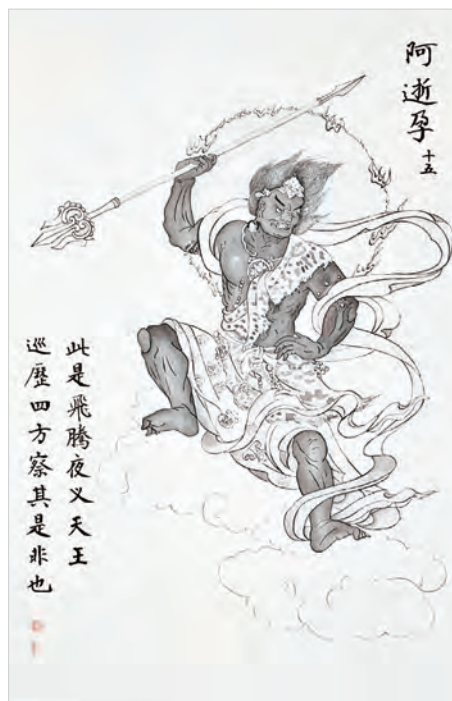 阿逝孕
十五
此是飛騰夜义天王
巡歷四方察其是非也